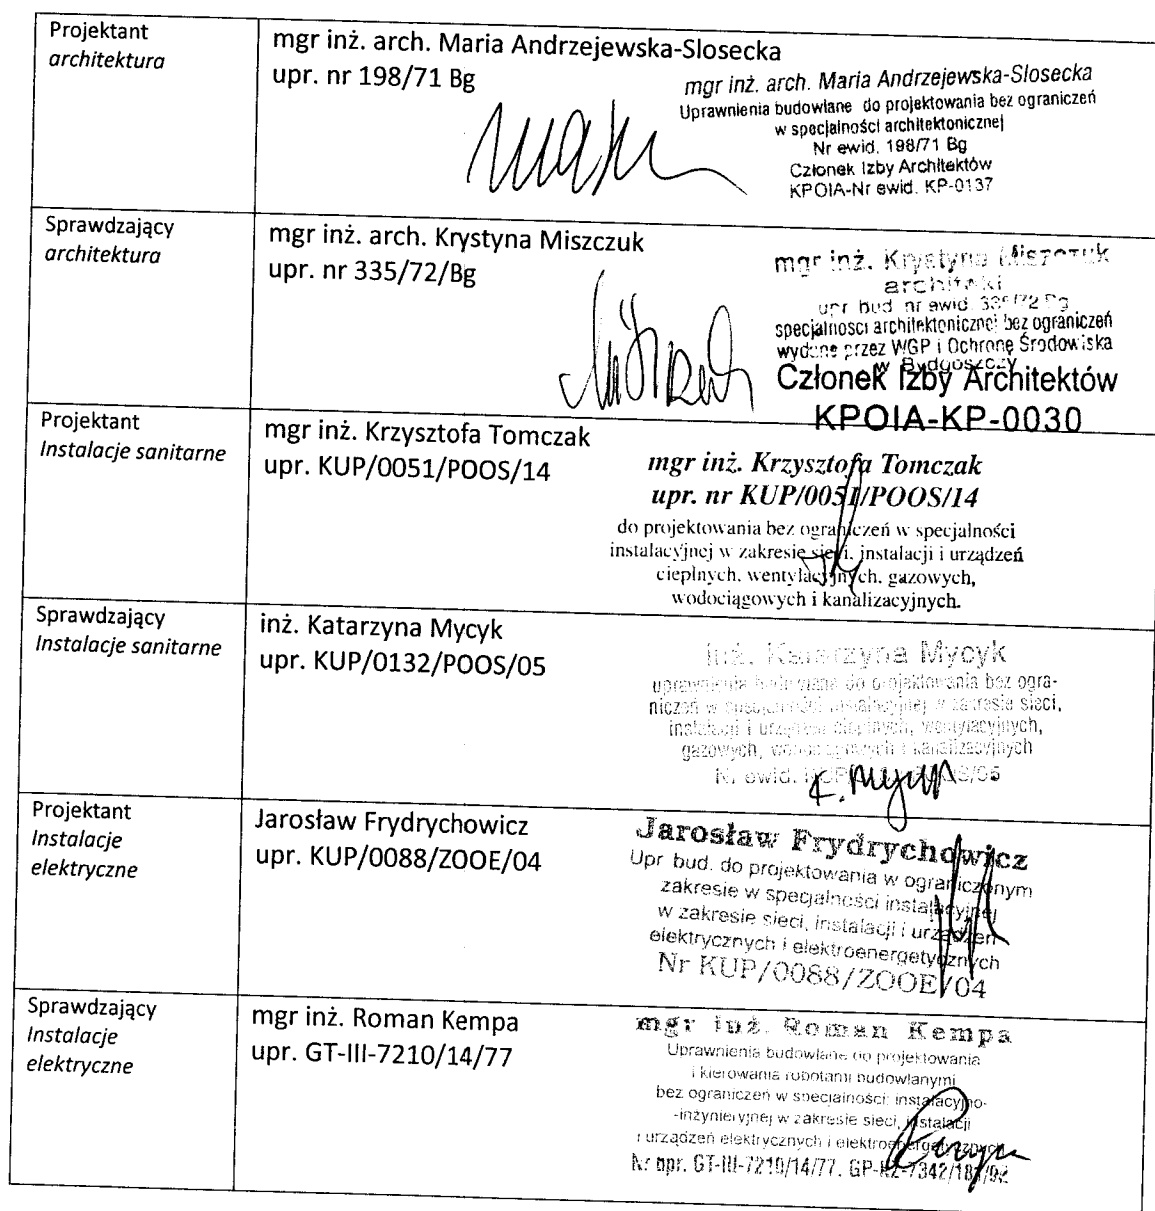 Projektant
architektura
mgr inż. arch. Maria Andrzejewska-Slosecka
upr. nr 198/71 Bg
mgr inż. arch. Maria Andrzejewska-Slosecka
Uprawnienia budowlane do projektowania bez ograniczeń
w specjalności architektonicznej
Nr ewid. 198/71 Bg
Członek Izby Architektów
KPOIA-Nr ewid. KP-0137
Sprawdzający
architektura
mgr inż. arch. Krystyna Miszczuk
upr. nr 335/72/Bg
mgr inż. Krystyna Miszczuk
architekt
upr. bud. nr ewid. 335/72 Bg
specjalności architektonicznej bez ograniczeń
wydane przez WGP i Ochronę Środowiska
w Bydgoszczy
Członek Izby Architektów
KPOIA-KP-0030
Projektant
Instalacje sanitarne
mgr inż. Krzysztofa Tomczak
upr. KUP/0051/POOS/14
mgr inż. Krzysztofa Tomczak
upr. nr KUP/0051/POOS/14
do projektowania bez ograniczeń w specjalności
instalacyjnej w zakresie sieci, instalacji i urządzeń
cieplnych, wentylacyjnych, gazowych,
wodociągowych i kanalizacyjnych.
Sprawdzający
Instalacje sanitarne
inż. Katarzyna Mycyk
upr. KUP/0132/POOS/05
inż. Katarzyna Mycyk
uprawnienia budowlane do projektowania bez ogra-
niczeń w specjalności instalacyjnej w zakresie sieci,
instalacji i urządzeń cieplnych, wentylacyjnych,
gazowych, wodociągowych i kanalizacyjnych
K. Mycyk
Projektant
Instalacje
elektryczne
Jarosław Frydrychowicz
upr. KUP/0088/ZOOE/04
Jarosław Frydrychowicz
Upr. bud. do projektowania w ograniczonym
zakresie w specjalności instalacyjnej
w zakresie sieci, instalacji i urządzeń
elektrycznych i elektroenergetycznych
Nr KUP/0088/ZOOE/04
Sprawdzający
Instalacje
elektryczne
mgr inż. Roman Kempa
upr. GT-III-7210/14/77
mgr inż. Roman Kempa
Uprawnienia budowlane do projektowania
i kierowania robotami budowlanymi
bez ograniczeń w specjalności: instalacyjno-
-inżynieryjnej w zakresie sieci, instalacji
i urządzeń elektrycznych i elektroenergetycznych
Nr upr. GT-III-7210/14/77.